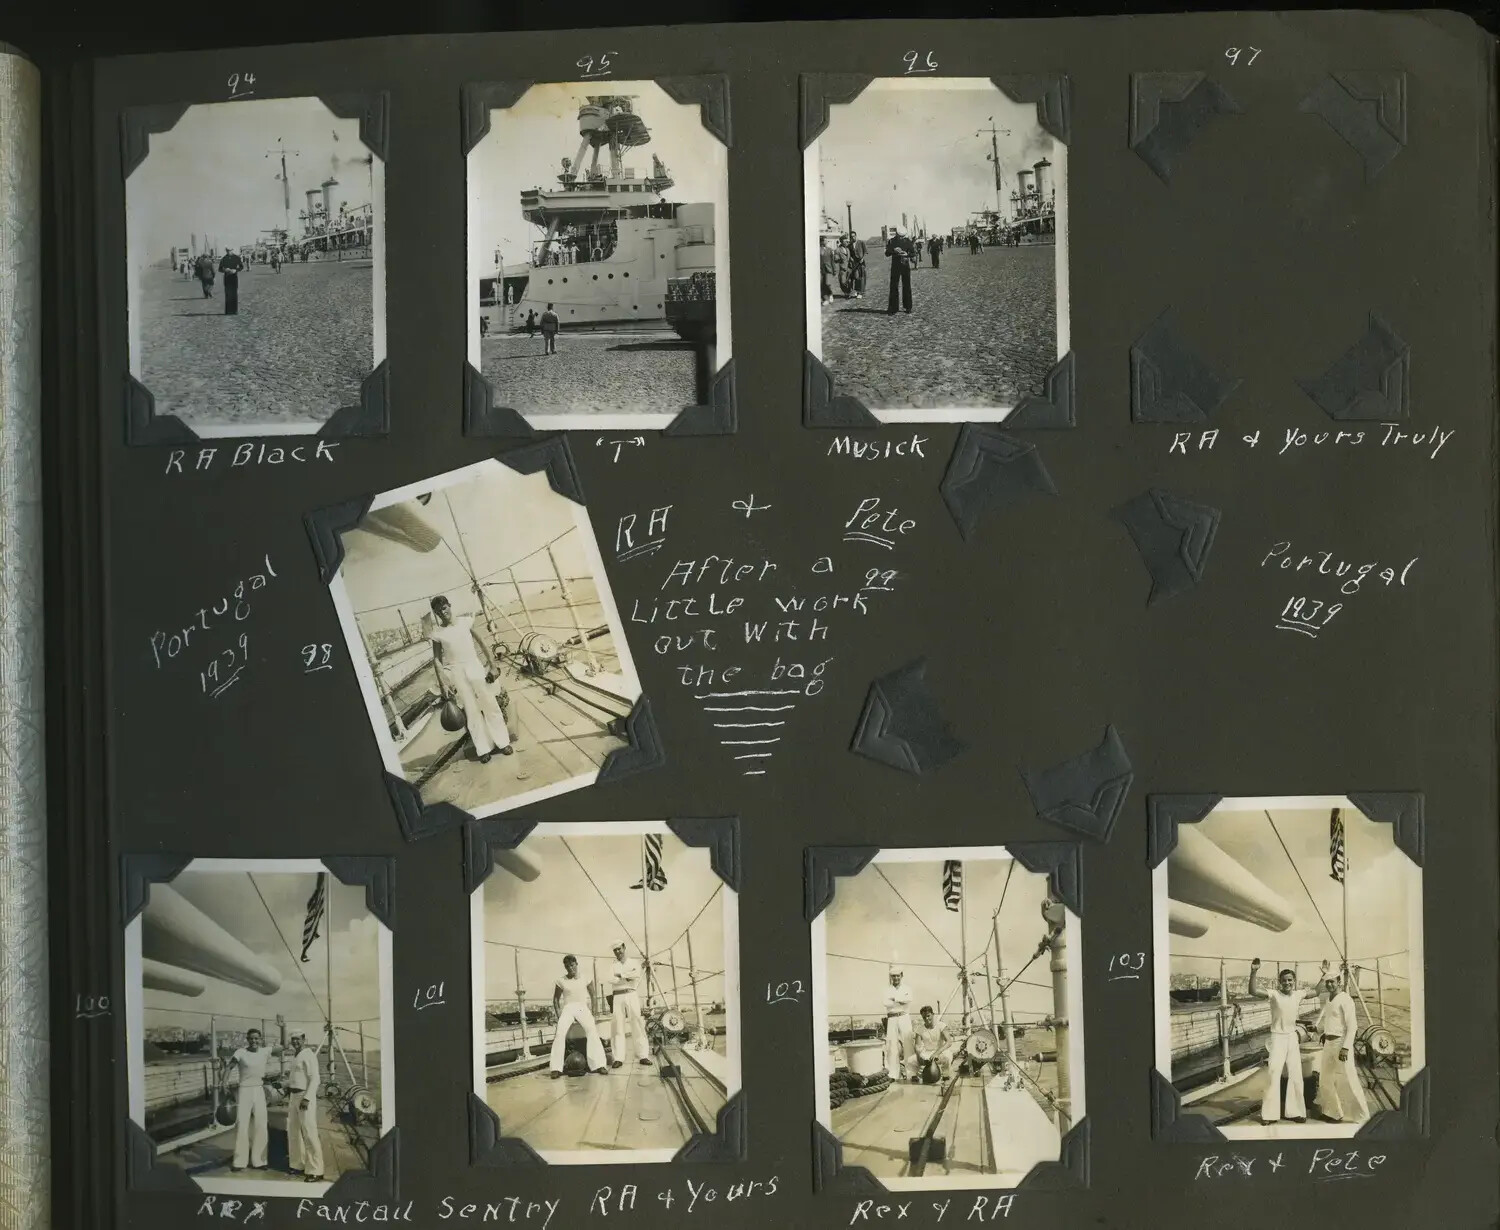 94
95
96
97
RA Black
"T"
Musick
RA & Yours Truly
Portugal
1939
98
RA & Pete
99
After a
Little work
out with
the bag
Portugal
1939
100
101
102
103
Rex Fantail Sentry RA & Yours
Rex & RA
Rex & Pete